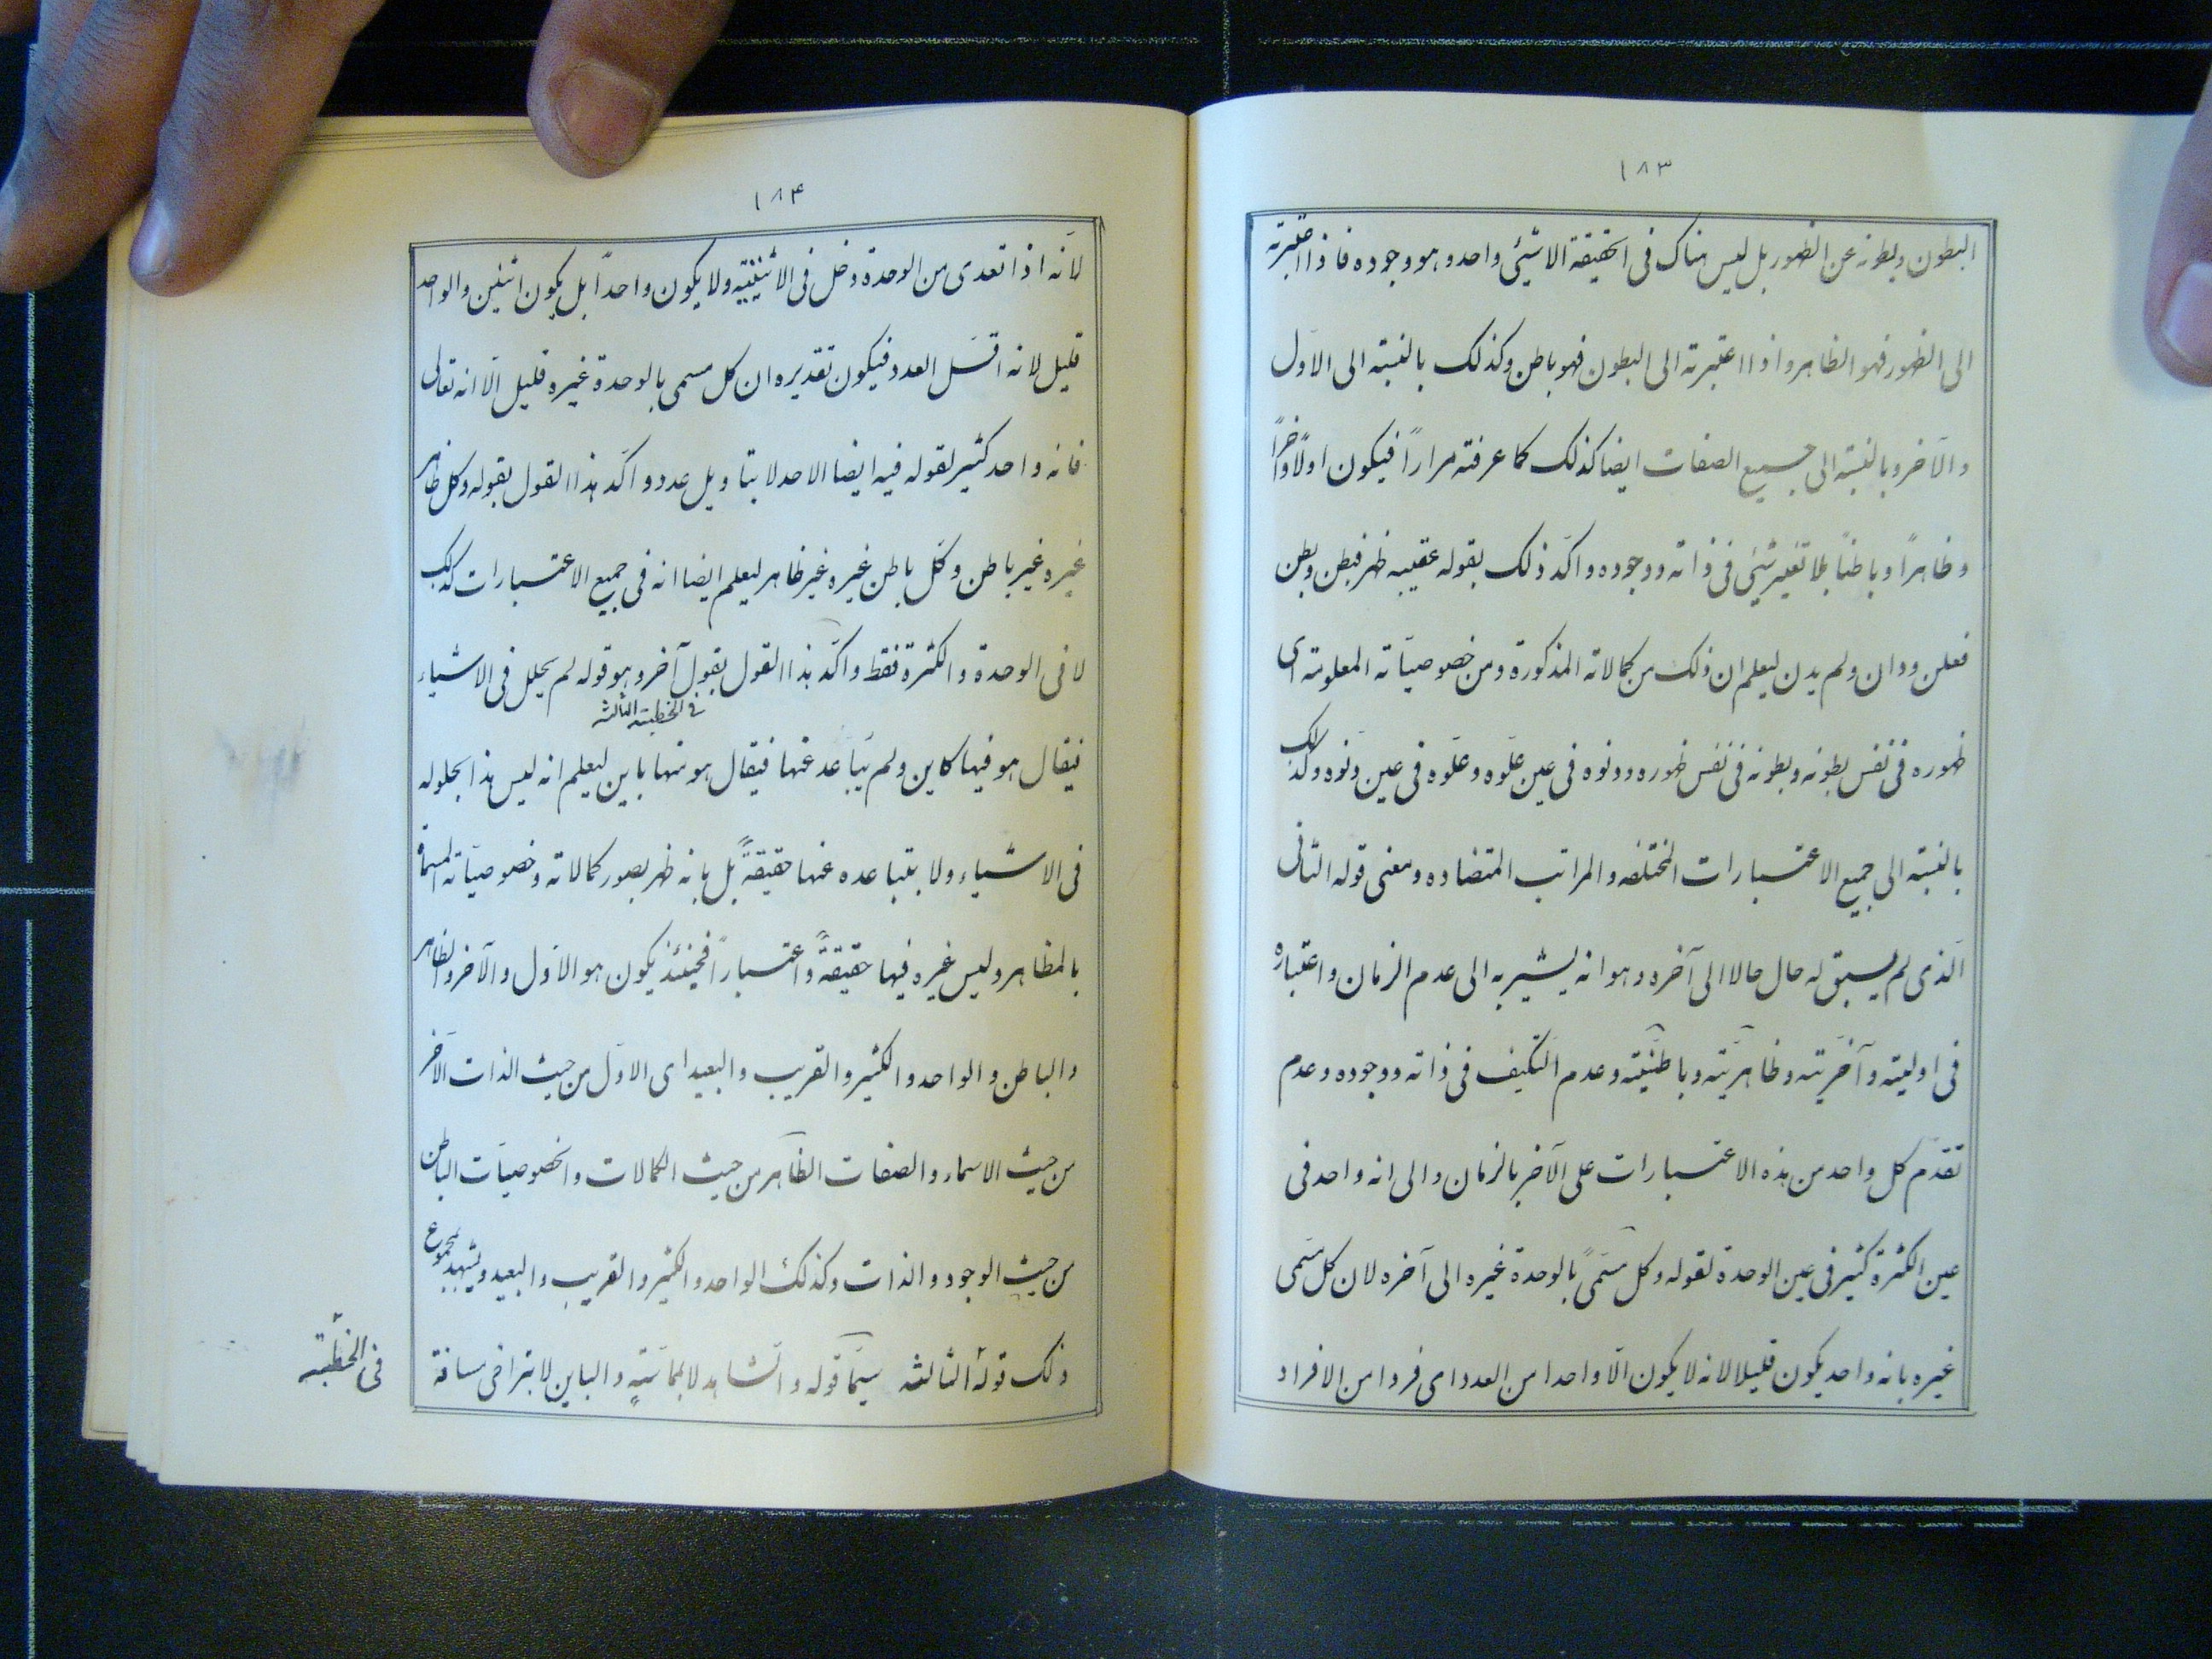 ١٨٣
البطون وبطونه عن الظهور بل ليس هناك فى الحقيقة الا شيئى واحد وهو وجوده فاذا اعتبرته
الى الظهور فهو الظاهر واذا اعتبرته الى البطون فهو باطن وكذلك بالنسبته الى الاوّل
والآخر وبالنسبته الى جميع الصفات ايضا كذلك كما عرفته مراراً فيكون اولاً وآخراً
وظاهراً وباطناً بلا تغير شيئى فى ذاته ووجوده واكّد ذلك بقوله عقيبه ظهر فبطن وبطن
فعلن ودان ولم يدن ليعلم ان ذلك من كمالاته المذكورة ومن خصوصيّاته المعلومته اى
ظهوره فى نفس بطونه وبطونه فى نفس ظهوره ودنوه فى عين علّوه وعلّوه فى عين دنوه وكذلك
بالنسبته الى جميع الاعتبارات المختلفه والمراتب المتضاده ومعنى قوله الثانى
الّذى لم يسبق له حال حالا الى آخره وهو انه يشير به الى عدم الزمان واعتباره
فى اوليته وآخريّته وظاهريّته وباطنيّته وعدم التكيف فى ذاته ووجوده وعدم
تقدّم كل واحد من هذه الاعتبارات على الآخر بالزمان والى انه واحد فى
عين الكثرة كثير فى عين الوحدة لقوله وكل مسّمىً بالوحدة غيره الى آخره لان كل مسّمى
غيره بانه واحد يكون قليلا لانه لا يكون الّا واحدا من العدد اى فردا من الافراد
١٨۴
لانّه اذا تعدى من الوحدة دخل فى الاثنينيّة ولا يكون واحداً بل يكون اثنين والواحد
قليل لانه اقسّل العدد فيكون تقديره ان كل مسمى بالوحدة غيره قليل الّا انه تعالى
فانه واحد كثير لقوله فيه ايضا الاحد لا بتاويل عدد واكّد هذا القول بقوله وكل ظاهر
غيره غير باطن وكل باطن غيره غير ظاهر ليعلم ايضا انه فى جميع الاعتبارات كذلك
لا فى الوحدة والكثرة فقط واكّد هذا القول بقول آخر وهو قوله لم يحلل فى الاشياء
فى الخطبته الثالثه
فيقال هو فيها كاين ولم يتباعد عنها فيقال هو منها باين ليعلم انه ليس هذا بحلوله
فى الاشياء ولا بتباعده عنها حقيقةً بل بانه ظهر بصور كمالاته وخصوصيّاته المسماة
بالمظاهر وليس غيره فيها حقيقةً واعتباراً فحينئذ يكون هو الاوّل والآخر والظاهر
والباطن والواحد والكثير والقريب والبعيد اى الاوّل من حيث الذات الآخر
من حيث الاسماء والصفات الظاهر من حيث الكمالات والخصوصيّات الباطن
من حيث الوجود والذات وكذلك الواحد والكثير والقريب والبعيد ويشهد بمجموع
ذلك قوله الثالثه سيّما قوله والشاهد لا بمماسّتهٍ والباين لا بتراخى مسافة
فى الخطبته